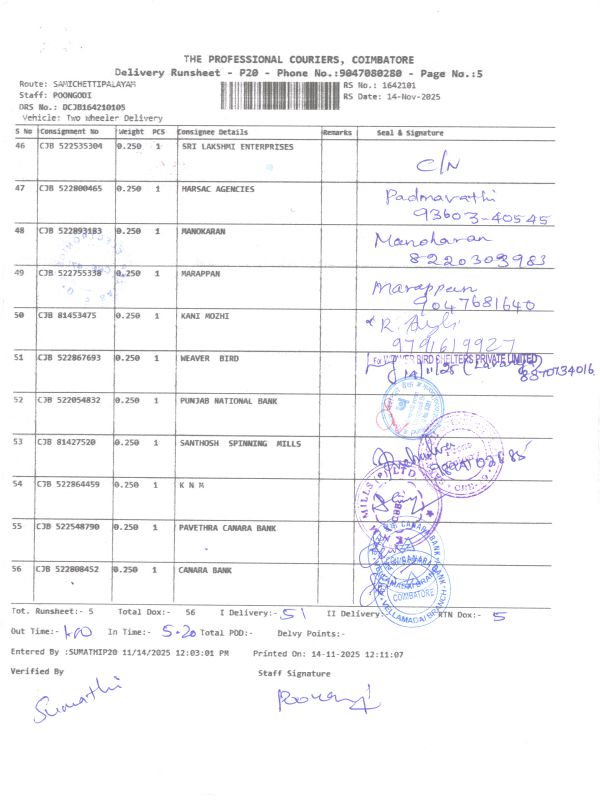 THE PROFESSIONAL COURIERS, COIMBATORE
Delivery Runsheet - P20 - Phone No.:9047080280 - Page No.:5
Route: SAMICHETTIPALAYAM RS No.: 1642101
Staff: POONGODI RS Date: 14-Nov-2025
DRS No.: DCJB164210105
Vehicle: Two Wheeler Delivery
S No Consignment No Weight PCS Consignee Details Remarks Seal & Signature
46 CJB 522535304 0.250 1 SRI LAKSHMI ENTERPRISES
C/N
47 CJB 522800465 0.250 1 HARSAC AGENCIES
Padmavathi
93603-40545
48 CJB 522893183 0.250 1 MANOKARAN
Manoharan
8220303983
49 CJB 522755338 0.250 1 MARAPPAN
Marappan
9047681640
50 CJB 81453475 0.250 1 KANI MOZHI
R.
9791619927
51 CJB 522867693 0.250 1 WEAVER BIRD
For WEAVER BIRD SHELTERS PRIVATE LIMITED
14/11/25
8870734016
52 CJB 522054832 0.250 1 PUNJAB NATIONAL BANK
53 CJB 81427520 0.250 1 SANTHOSH SPINNING MILLS
54 CJB 522864459 0.250 1 K N M
MILLS (P) LTD
55 CJB 522548790 0.250 1 PAVETHRA CANARA BANK
CANARA BANK
56 CJB 522808452 0.250 1 CANARA BANK
COIMBATORE
VELLAMADAI BRANCH
Tot. Runsheet:- 5 Total Dox:- 56 I Delivery:- 51 II Delivery:- RTN Dox:- 5
Out Time:- In Time:- 5.20 Total POD:- Delvy Points:-
Entered By :SUMATHIP20 11/14/2025 12:03:01 PM Printed On: 14-11-2025 12:11:07
Verified By Staff Signature
Sumathi